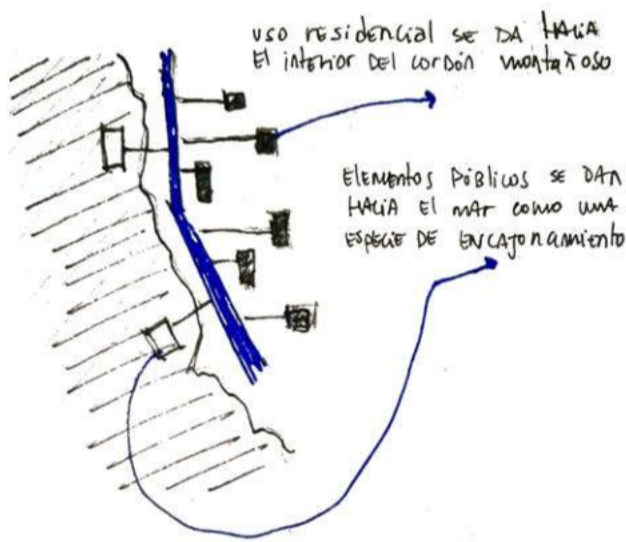 USO RESIDENCIAL SE DA HACIA
EL INTERIOR DEL CORDÓN MONTAÑOSO
ELEMENTOS PÚBLICOS SE DAN
HACIA EL MAR COMO UNA
ESPECIE DE ENCAJONAMIENTO